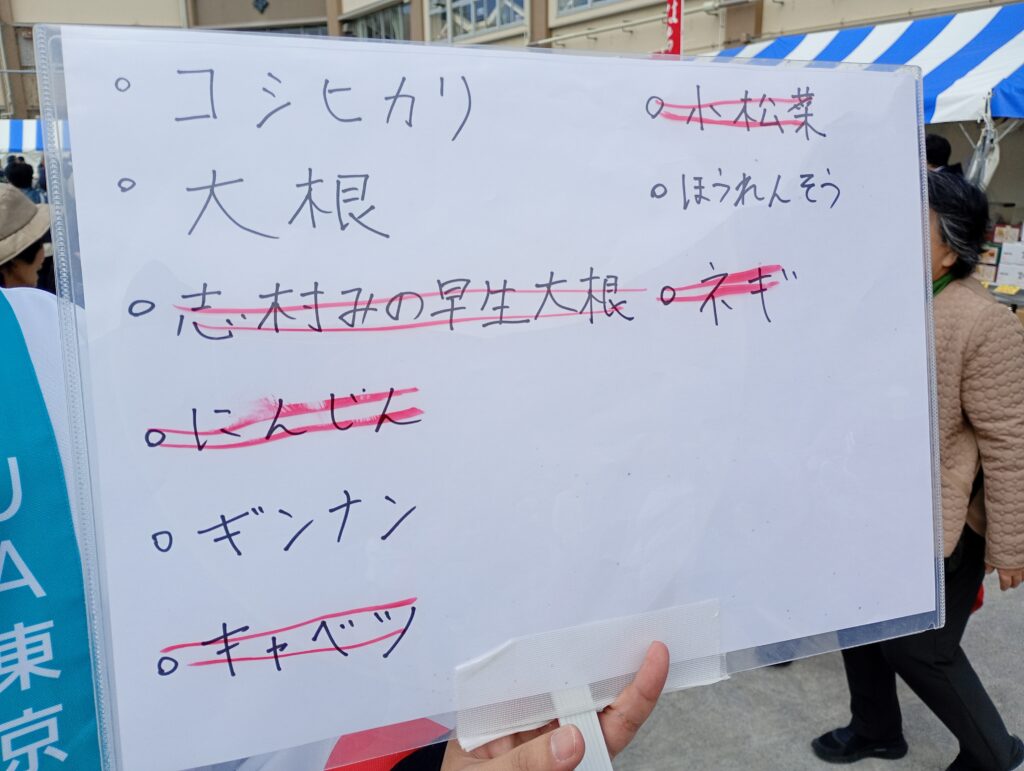 コシヒカリ
大根
志村みの早生大根
にんじん
ギンナン
キャベツ
小松菜
ほうれんそう
ネギ
JA東京